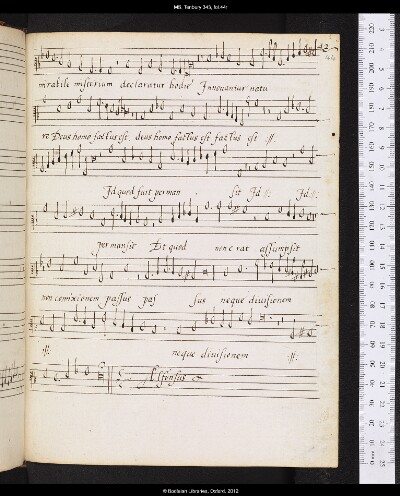 MS. Tenbury 343, fol.44r
mirabile misterium declaratur hodie Innovantur natu
re Deus homo factus est, deus homo factus est factus est :||:
Id quod fuit perman sit Id :||: Id :||:
permansit Et quod non erat assumpsit
non comixcionem passus pas sus neque divisionem
:||: neque divisionem :||:
Alfonsus
© Bodleian Libraries, Oxford, 2012